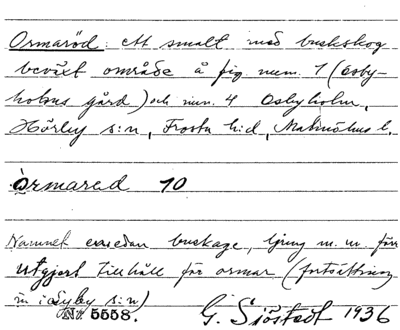 Ormaröd: ett smalt med buskskog
bevöxt område å fig. num. 1 (Osby-
holms gård) och num. 4 Osbyholm,
Hörby s:n, Frosta h:d, Malmöhus l.
òrmared 10
Namnet emedan buskage, ljung m.m. förr
utgjort tillhåll för ormar (fortsättning
in i Lyby s:n)
No 5558. G. Sjöstedt 1936